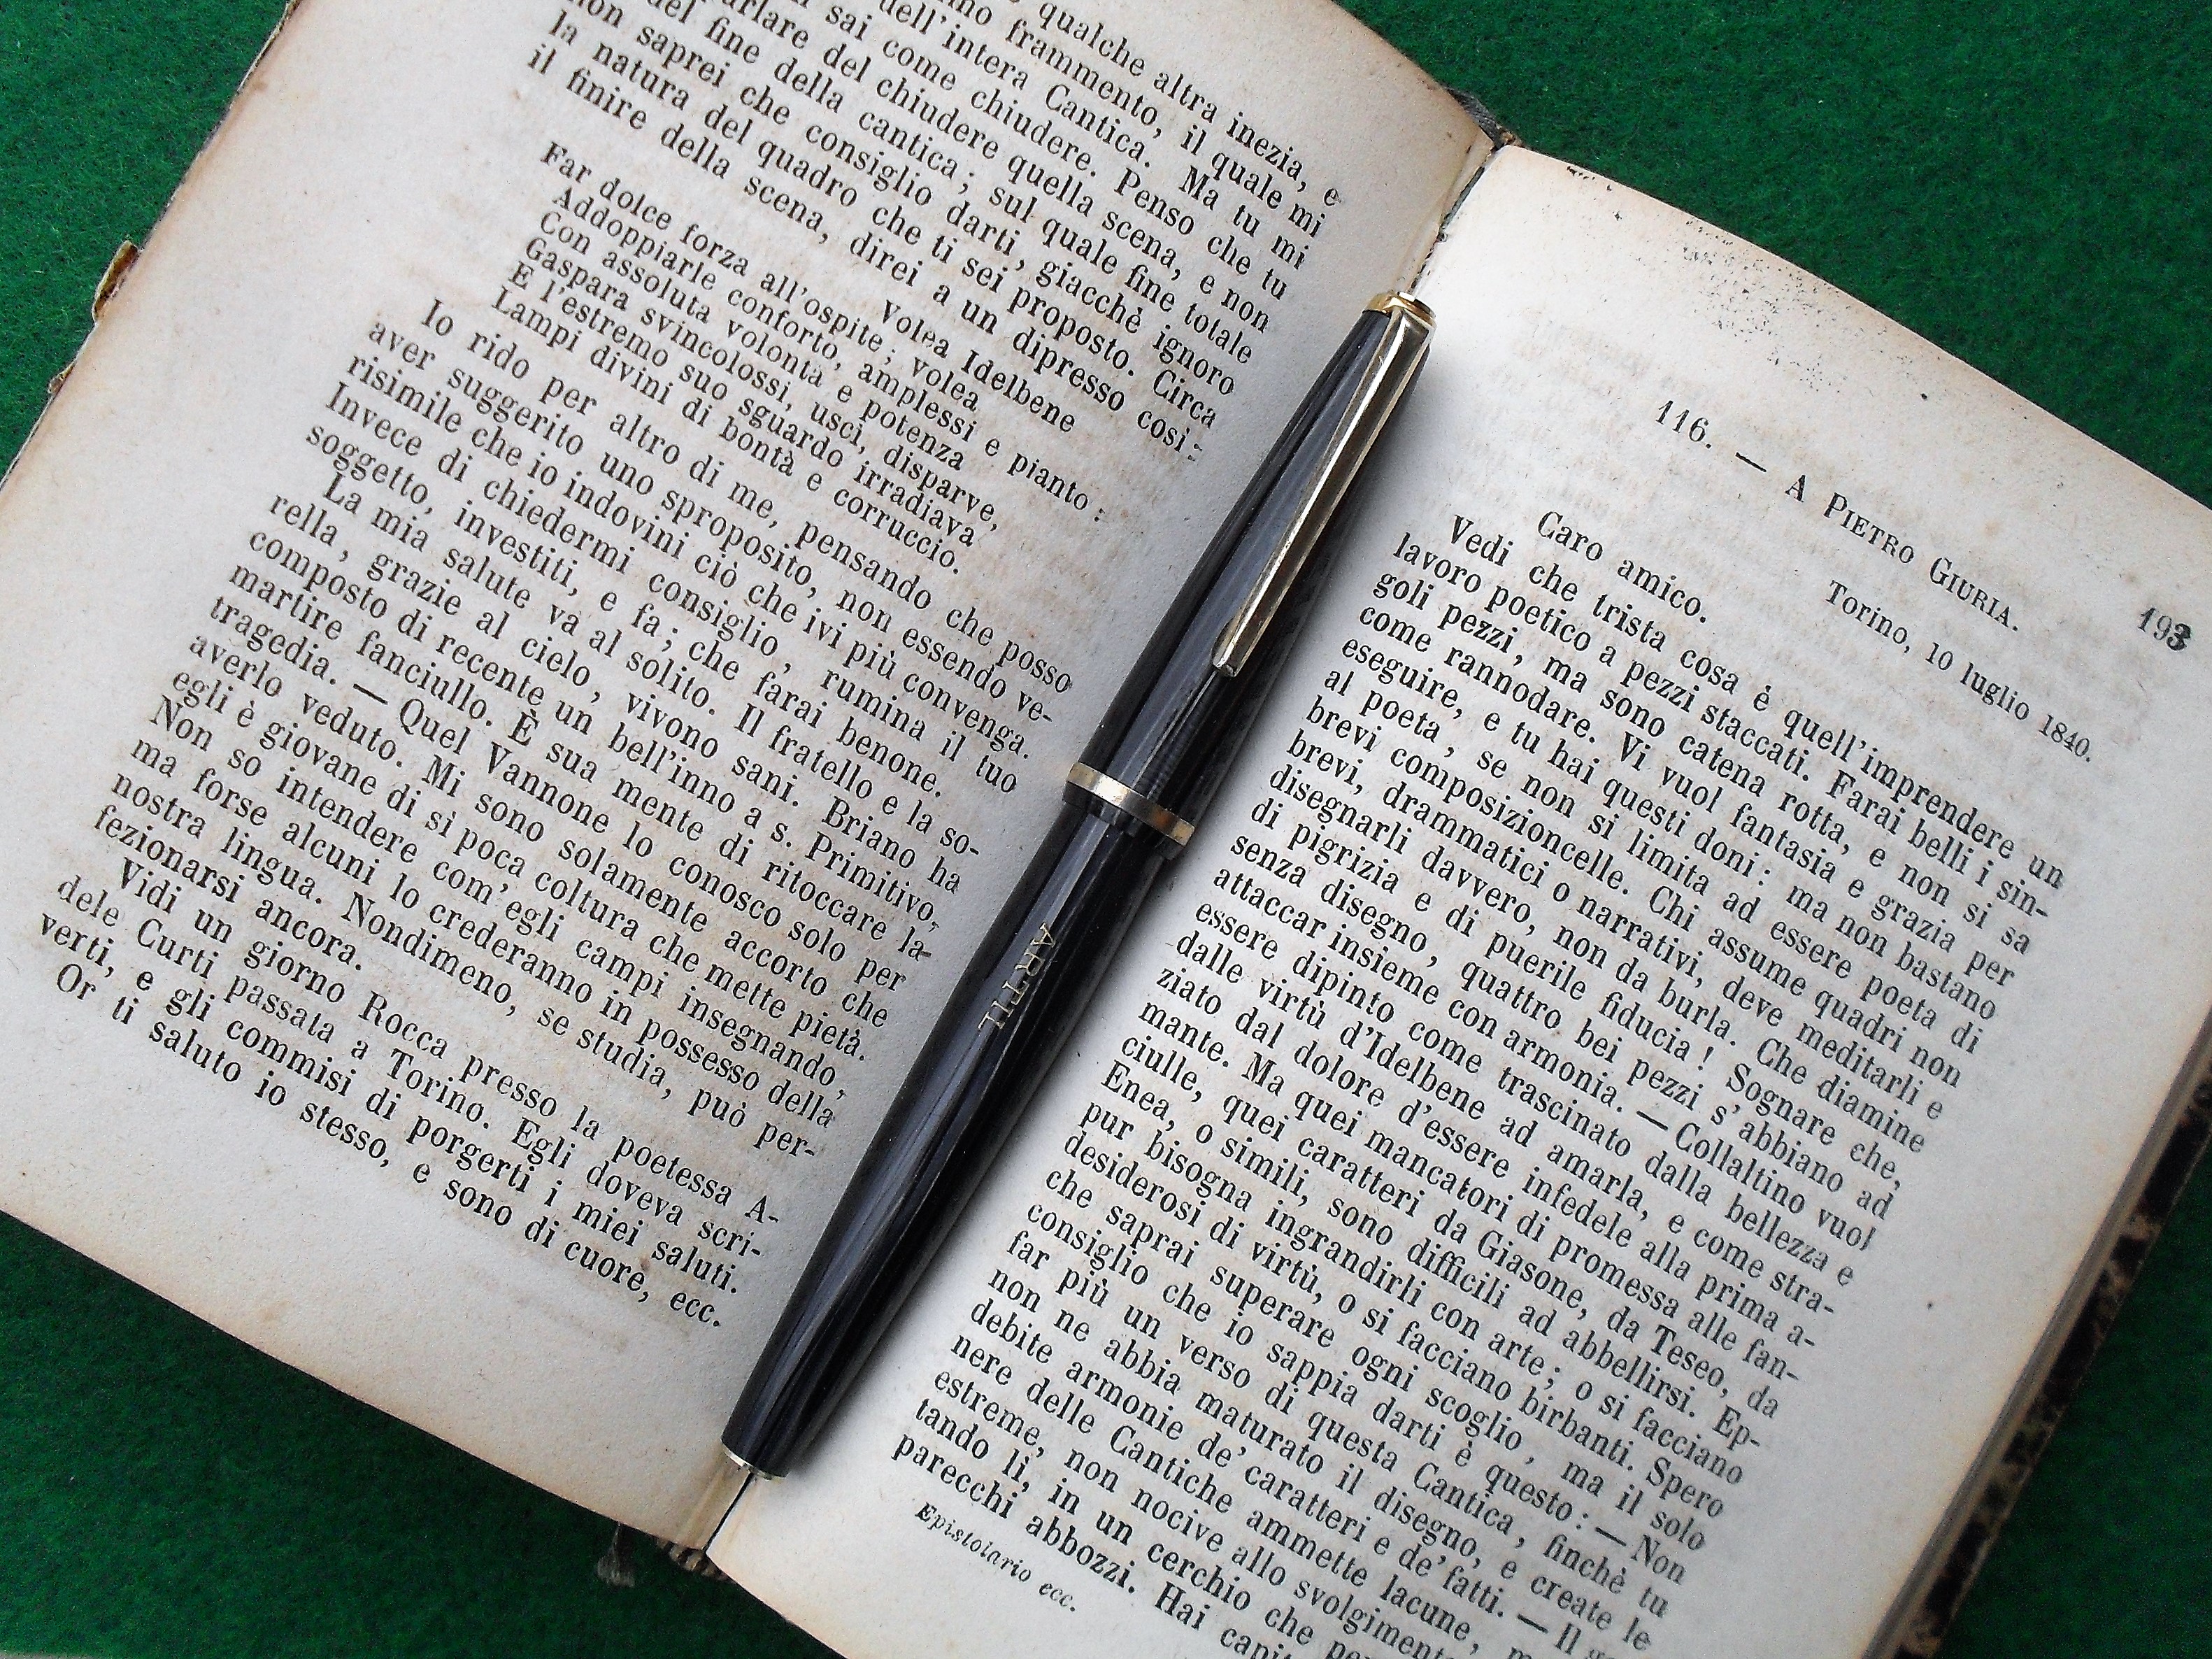 qualche altra inezia, e
frammento, il quale mi
dell'intera Cantica. Ma tu mi
sai come chiudere. Penso che tu
del chiudere quella scena, e non
del fine della cantica; sul quale fine totale
non saprei che consiglio darti, giacchè ignoro
la natura del quadro che ti sei proposto. Circa
il finire della scena, direi a un dipresso così:
Volea Idelbene
Far dolce forza all'ospite; volea
Addoppiarle conforto, amplessi e pianto:
Con assoluta volontà e potenza
Gaspara svincolossi, uscì, disparve,
E l'estremo suo sguardo irradiava
Lampi divini di bontà e corruccio.
Io rido per altro di me, pensando che posso
aver suggerito uno sproposito, non essendo ve-
risimile che io indovini ciò che ivi più convenga.
Invece di chiedermi consiglio, rumina il tuo
soggetto, investiti, e fa; che farai benone.
La mia salute va al solito. Il fratello e la so-
rella, grazie al cielo, vivono sani. Briano ha
composto di recente un bell'inno a s. Primitivo,
martire fanciullo. È sua mente di ritoccare la
tragedia. — Quel Vannone lo conosco solo per
averlo veduto. Mi sono solamente accorto che
egli è giovane di sì poca coltura che mette pietà.
Non so intendere com'egli campi insegnando,
ma forse alcuni lo crederanno in possesso della
nostra lingua. Nondimeno, se studia, può per-
fezionarsi ancora.
Vidi un giorno Rocca presso la poetessa A-
dele Curti passata a Torino. Egli doveva scri-
verti, e gli commisi di porgerti i miei saluti.
Or ti saluto io stesso, e sono di cuore, ecc.
ARTIL
193
116. — A PIETRO GIURIA.
Torino, 10 luglio 1840.
Caro amico.
Vedi che trista cosa è quell'imprendere un
lavoro poetico a pezzi staccati. Farai belli i sin-
goli pezzi, ma sono catena rotta, e non si sa
come rannodare. Vi vuol fantasia e grazia per
eseguire, e tu hai questi doni: ma non bastano
al poeta, se non si limita ad essere poeta di
brevi composizioncelle. Chi assume quadri non
brevi, drammatici o narrativi, deve meditarli e
disegnarli davvero, non da burla. Che diamine
di pigrizia e di puerile fiducia! Sognare che,
senza disegno, quattro bei pezzi s'abbiano ad
attaccar insieme con armonia. — Collaltino vuol
essere dipinto come trascinato dalla bellezza e
dalle virtù d'Idelbene ad amarla, e come stra-
ziato dal dolore d'essere infedele alla prima a-
mante. Ma quei mancatori di promessa alle fan-
ciulle, quei caratteri da Giasone, da Teseo, da
Enea, o simili, sono difficili ad abbellirsi. Ep-
pur bisogna ingrandirli con arte; o si facciano
desiderosi di virtù, o si facciano birbanti. Spero
che saprai superare ogni scoglio, ma il solo
consiglio che io sappia darti è questo: — Non
far più un verso di questa Cantica, finchè tu
non ne abbia maturato il disegno, e create le
debite armonie de' caratteri e de' fatti. — Il
nere delle Cantiche ammette lacune,
estreme, non nocive allo svolgimento
tando lì, in un cerchio che
parecchi abbozzi. Hai
Epistolario ecc.